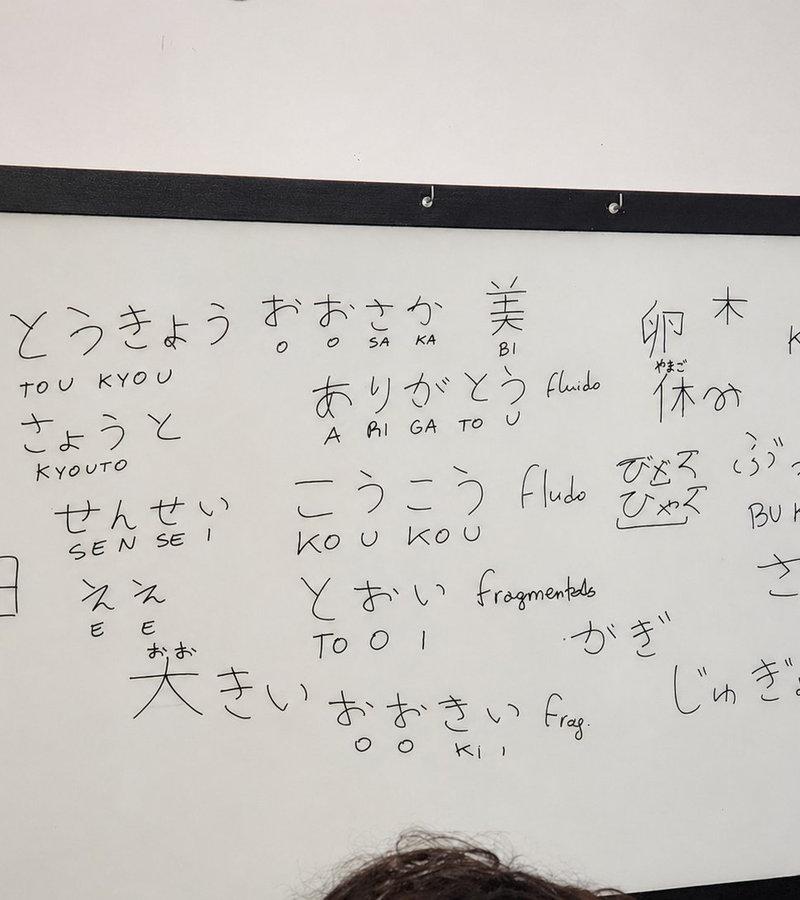 とうきょう おおさか 美 卵 木
TOU KYOU O O SA KA BI
ありがとう fluido やまご
さょうと A RI GA TO U 休み
KYOUTO
せんせい こうこう fludo
SEN SE I KO U KO U BU
ええ とおい
E E TO O I がぎ
おお
大きい おおきい frag. じゅぎ
O O KI I